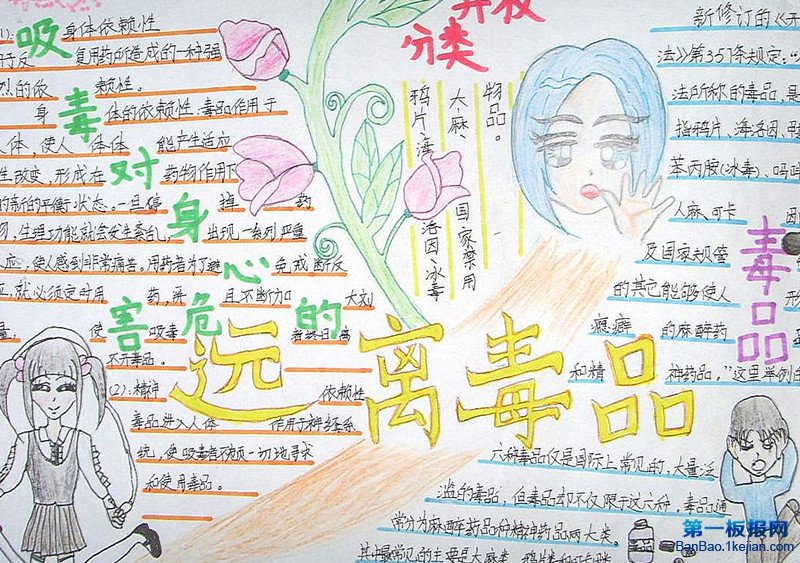 吸毒对身心的危害
(1):身体依赖性
于反复用药所造成的一种强
烈的依赖性。
身体的依赖性:毒品作用于
人体,使人体体能产生适应
性改变,形成在药物作用下
的新的平衡状态。一旦停掉药
物,生理功能就会发生紊乱,出现一系列严重
反应,使人感到非常痛苦。用药者为了避免戒断反
应,就必须定时用药,并且不断加大剂
量,使吸毒者终日离
不开毒品。
(2):精神依赖性
毒品进入人体作用于神经系
统,使吸毒者不顾一切地寻求
和使用毒品。
分类
鸦片、海洛因、冰毒
大麻、国家禁用
物品。
远离毒品
毒品
新修订的《
法》第357条规定:“
法所称的毒品,是
指鸦片、海洛因、
苯丙胺(冰毒)、吗啡
人麻、可卡因
及国家规管
的其它能够使人形
瘾癖的麻醉药
和精神药品,”这里举例的
六种毒品仅是国际上常见的,大量泛
滥的毒品,但毒品却不仅限于这六种,毒品通
常分为麻醉药品和精神药品两大类。
其中最常见的主要是大麻类
第一板报网
BanBao.1kejian.com